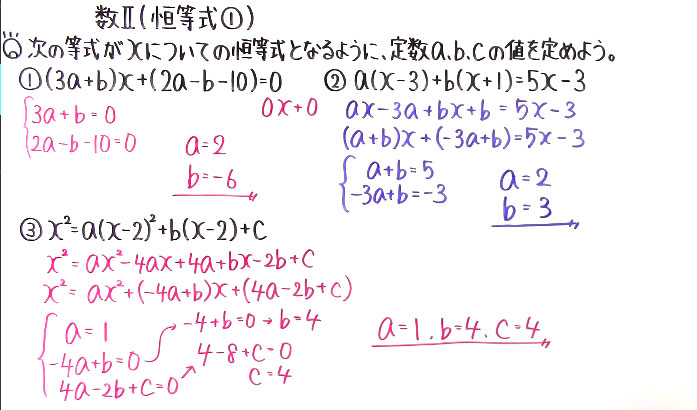 数Ⅱ(恒等式①)
Q 次の等式がxについての恒等式となるように、定数a.b.cの値を定めよう。
①(3a+b)x+(2a-b-10)=0
3a+b=0
2a-b-10=0
0x+0
a=2
b=-6
② a(x-3)+b(x+1)=5x-3
ax-3a+bx+b=5x-3
(a+b)x+(-3a+b)=5x-3
a+b=5
-3a+b=-3
a=2
b=3
③ x²=a(x-2)²+b(x-2)+c
x²=ax²-4ax+4a+bx-2b+c
x²=ax²+(-4a+b)x+(4a-2b+c)
a=1
-4a+b=0
4a-2b+c=0
-4+b=0→b=4
4-8+c=0
c=4
a=1.b=4.c=4